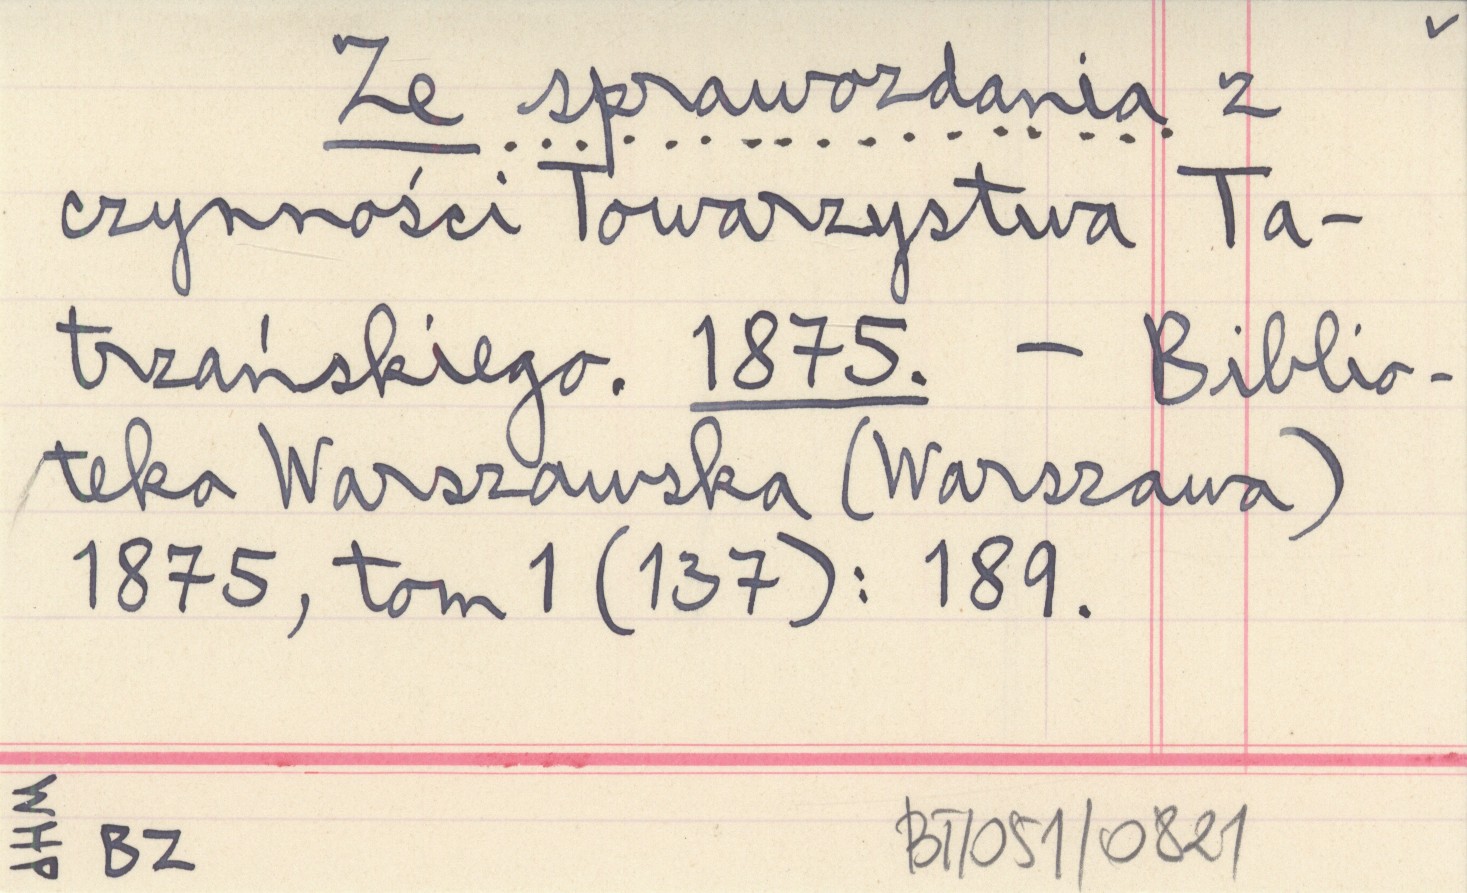 Ze sprawozdania z
czynności Towarzystwa Ta-
trzańskiego. 1875. — Biblio-
teka Warszawska (Warszawa)
1875, tom 1 (137): 189.
WHP
BZ
BT/051/0821